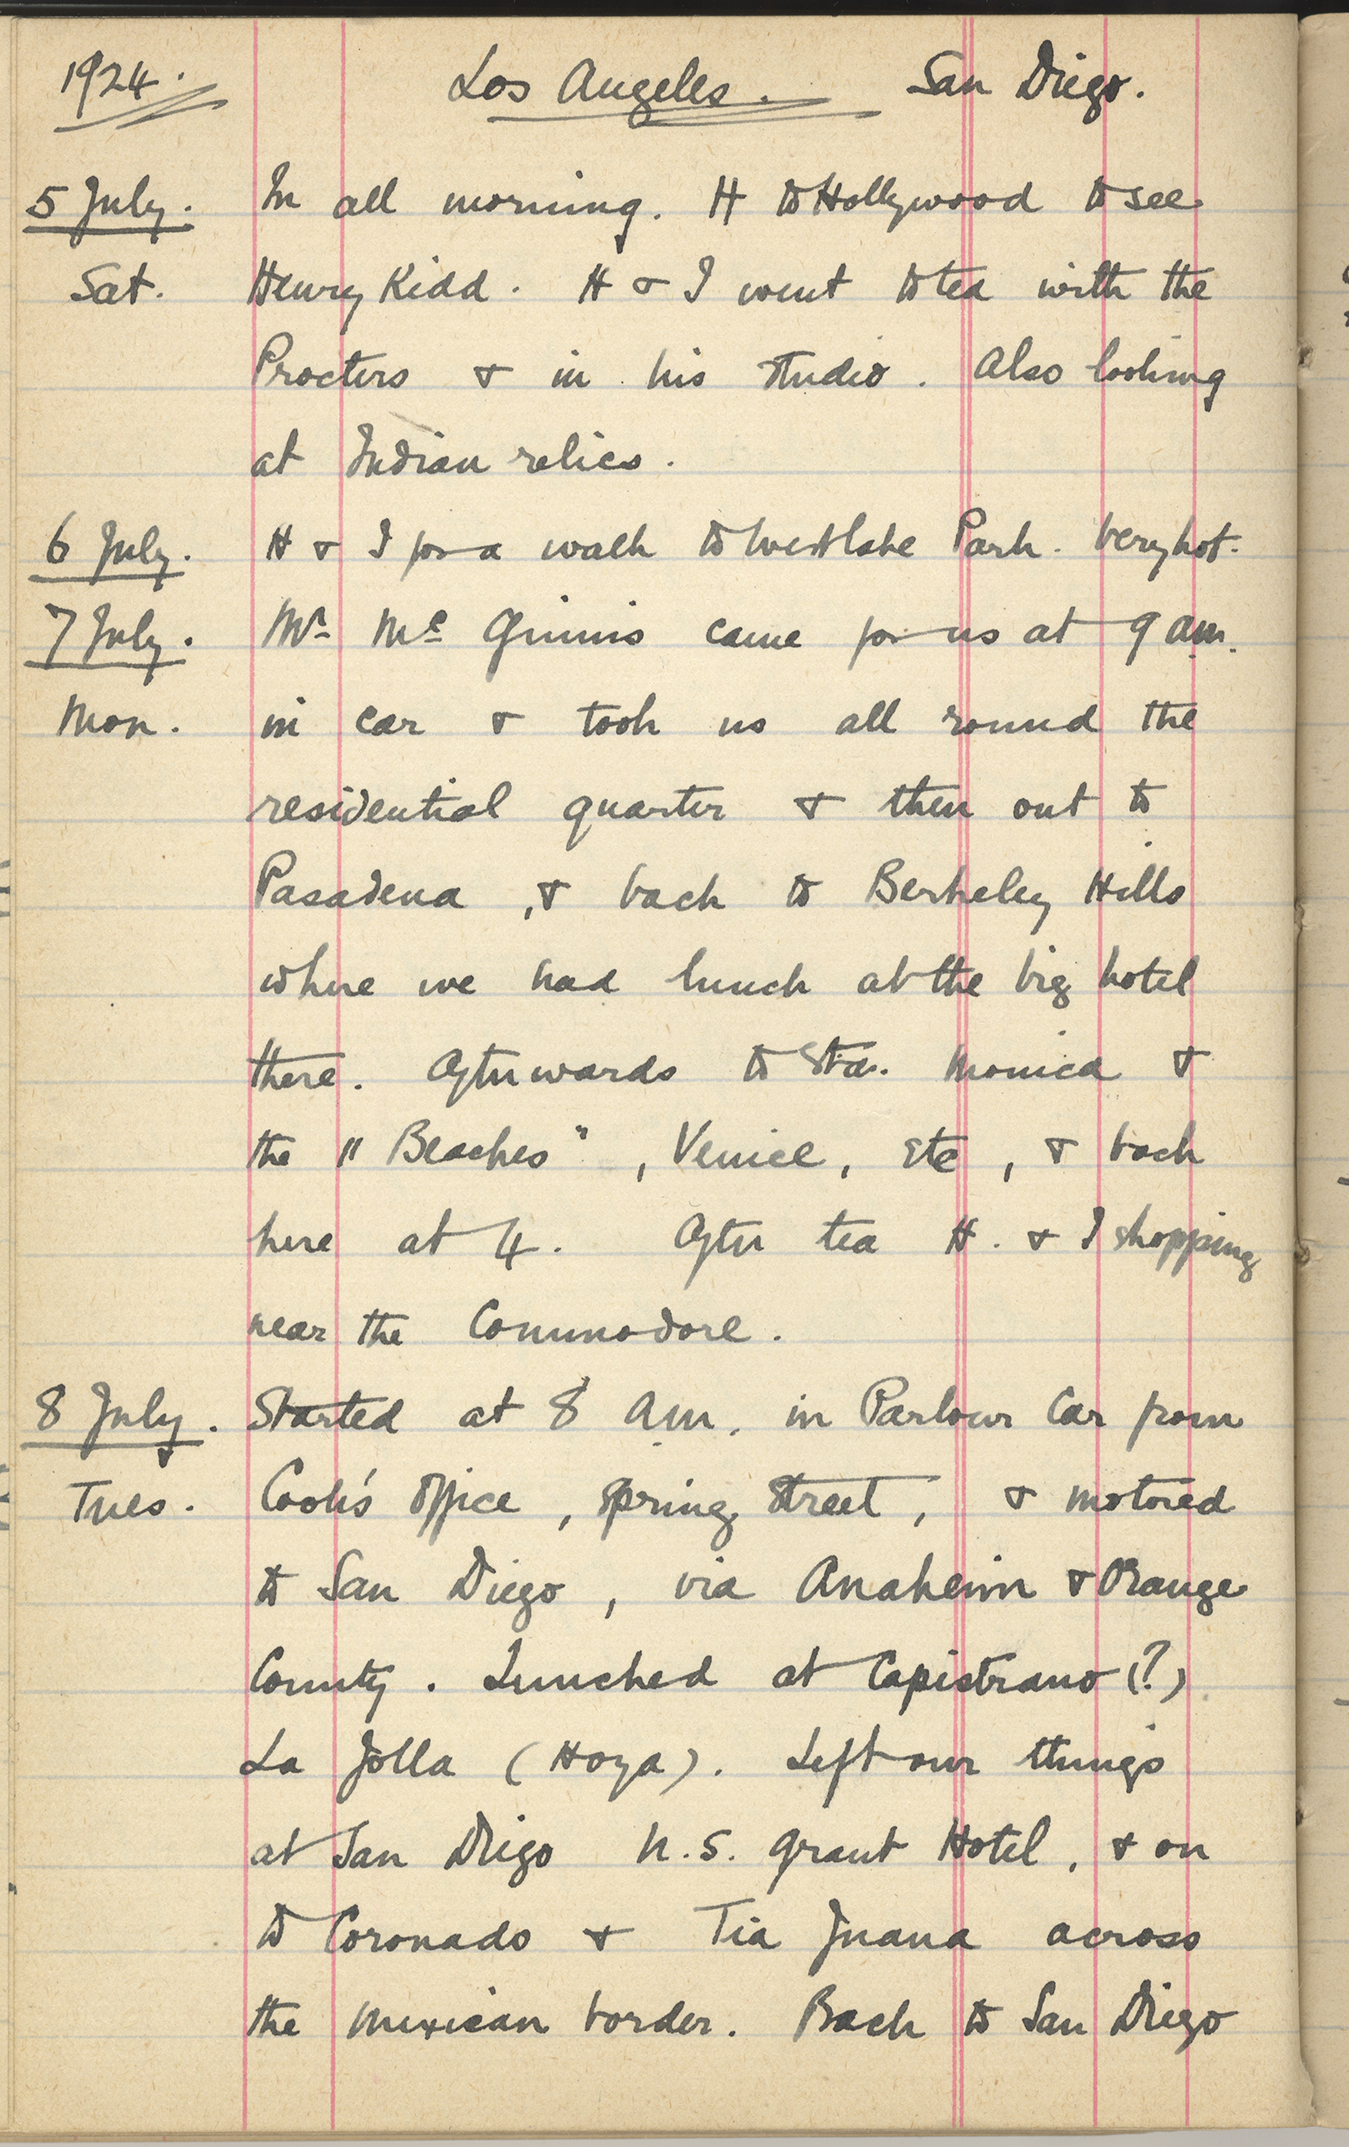 1924. Los Angeles. San Diego.
5 July. In all morning. H to Hollywood to see
Sat. Henry Kidd. H & I went to tea with the
Procters & in his studio. Also looking
at Indian relics.
6 July. H & I for a walk to Westlake Park. Very hot.
7 July. Mr. Mc Ginnis came for us at 9 am.
Mon. in car & took us all round the
residential quarter & then out to
Pasadena, & back to Berkeley Hills
where we had lunch at the big hotel
there. Afterwards to Sta. Monica &
the "Beaches", Venice, etc, & back
here at 4. After tea H. & I shopping
near the Commodore.
8 July. Started at 8 am. in Parlour Car from
Tues. Cook's office, Spring Street, & motored
to San Diego, via Anaheim & Orange
County. Lunched at Capistrano (?)
La Jolla (Hoya). Left our things
at San Diego U.S. Grant Hotel, & on
to Coronado & Tia Juana across
the Mexican border. Back to San Diego